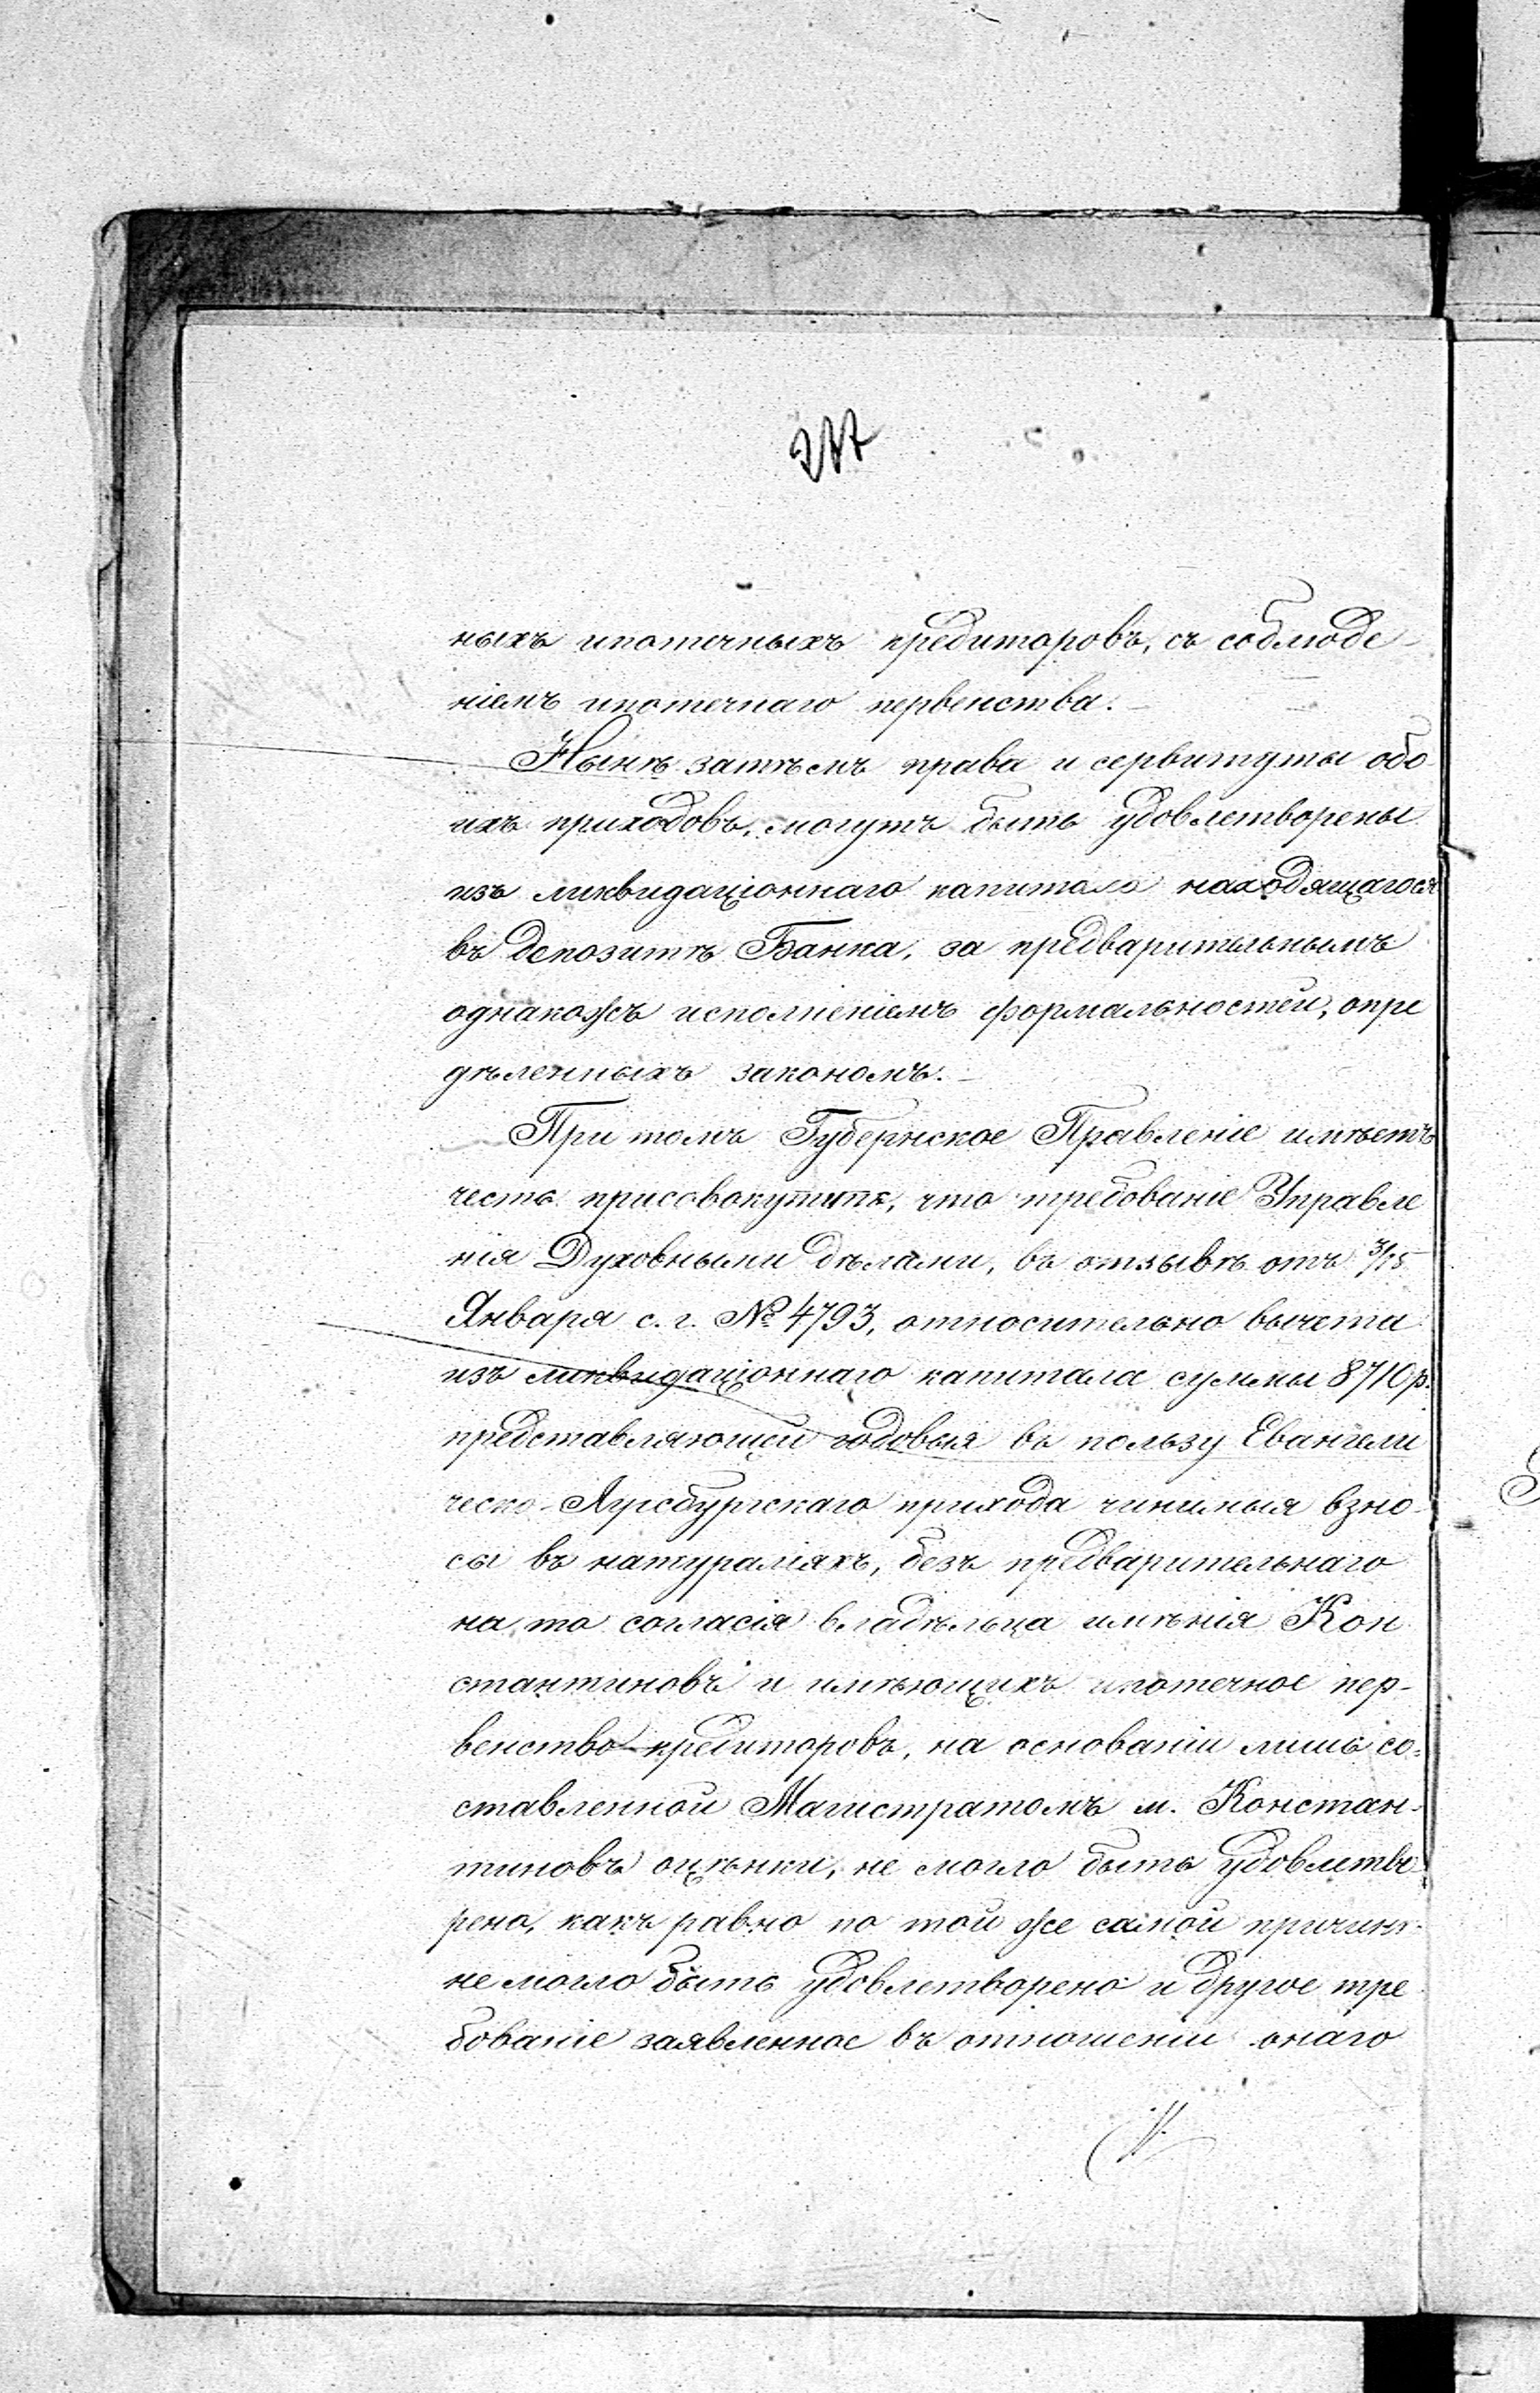 ныхъ ипотечныхъ кредиторовъ, съ соблюде-
ніемъ ипотечнаго первенства.
Нынѣ затѣмъ права и сервитуты обо
ихъ приходовъ, могутъ быть удовлетворены
изъ ликвидаціоннаго капитала находящагося
въ депозитѣ Банка, за предварительнымъ
однакожъ исполненіемъ формальностей, опре
дѣленныхъ закономъ.
При томъ Губернское Правленіе имѣетъ
честь присовокупить, что требованіе Управле
нія Духовными дѣлами, въ отзывѣ отъ 3/15
Января с. г. № 4793, относительно вычета
изъ ликвидаціоннаго капитала суммы 8710 р.
представляющей годовыя въ пользу Евангели
ческо-Аугсбургскаго прихода чинимыя взно-
сы въ натураліяхъ, безъ предварительнаго
на то согласія владѣльца имѣнія Кон
стантиновъ и имѣющихъ ипотечное пер-
венство кредиторовъ, на основаніи лишь со-
ставленной Магистратомъ м. Констан-
тиновъ оцѣнки, не могло быть удовлетво-
рено, какъ равно по той же самой причинѣ
не могло быть удовлетворено и другое тре
бованіе заявленное въ отношеніи онаго